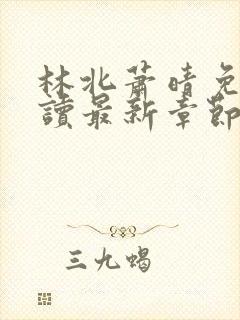 林北蕭晴免
讀最新章節
三九蝎